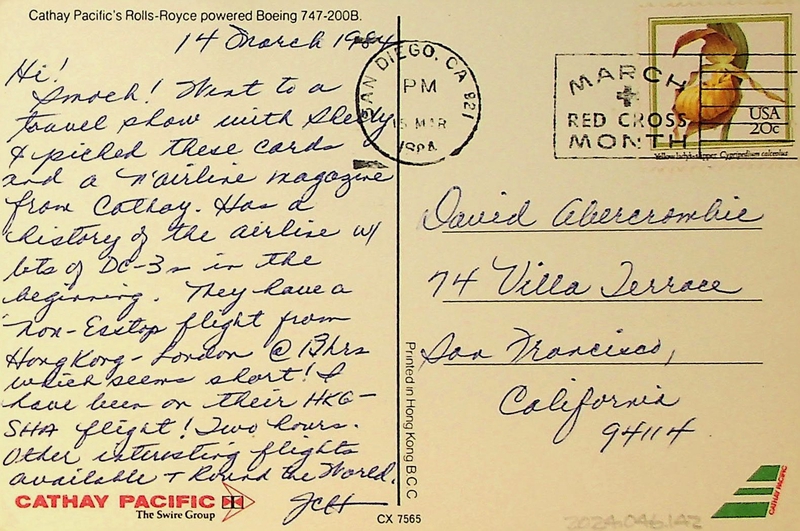 Cathay Pacific's Rolls-Royce powered Boeing 747-200B.
14 March 1984
Hi!
Smoch! Went to a
travel show with Shelly
& picked these cards
and a airline magazine
from Cathay. Has a
history of the airline w/
lots of DC-3s in the
beginning. They have a
non-stop flight from
Hong Kong - London @ 13 hrs
which seems short! I
have been on their HKG-
SHA flight! Two hours.
Other interesting flights
available + Round the World.
JCH
CATHAY PACIFIC
The Swire Group
CX 7565
Printed in Hong Kong B.C.C
SAN DIEGO, CA 921
PM
15 MAR
1984
MARCH
RED CROSS
MONTH
USA
20c
Yellow lady's slipper Cypripedium calceolus
David Abercrombie
74 Villa Terrace
San Francisco,
California
94114
CATHAY PACIFIC
2024.046.142